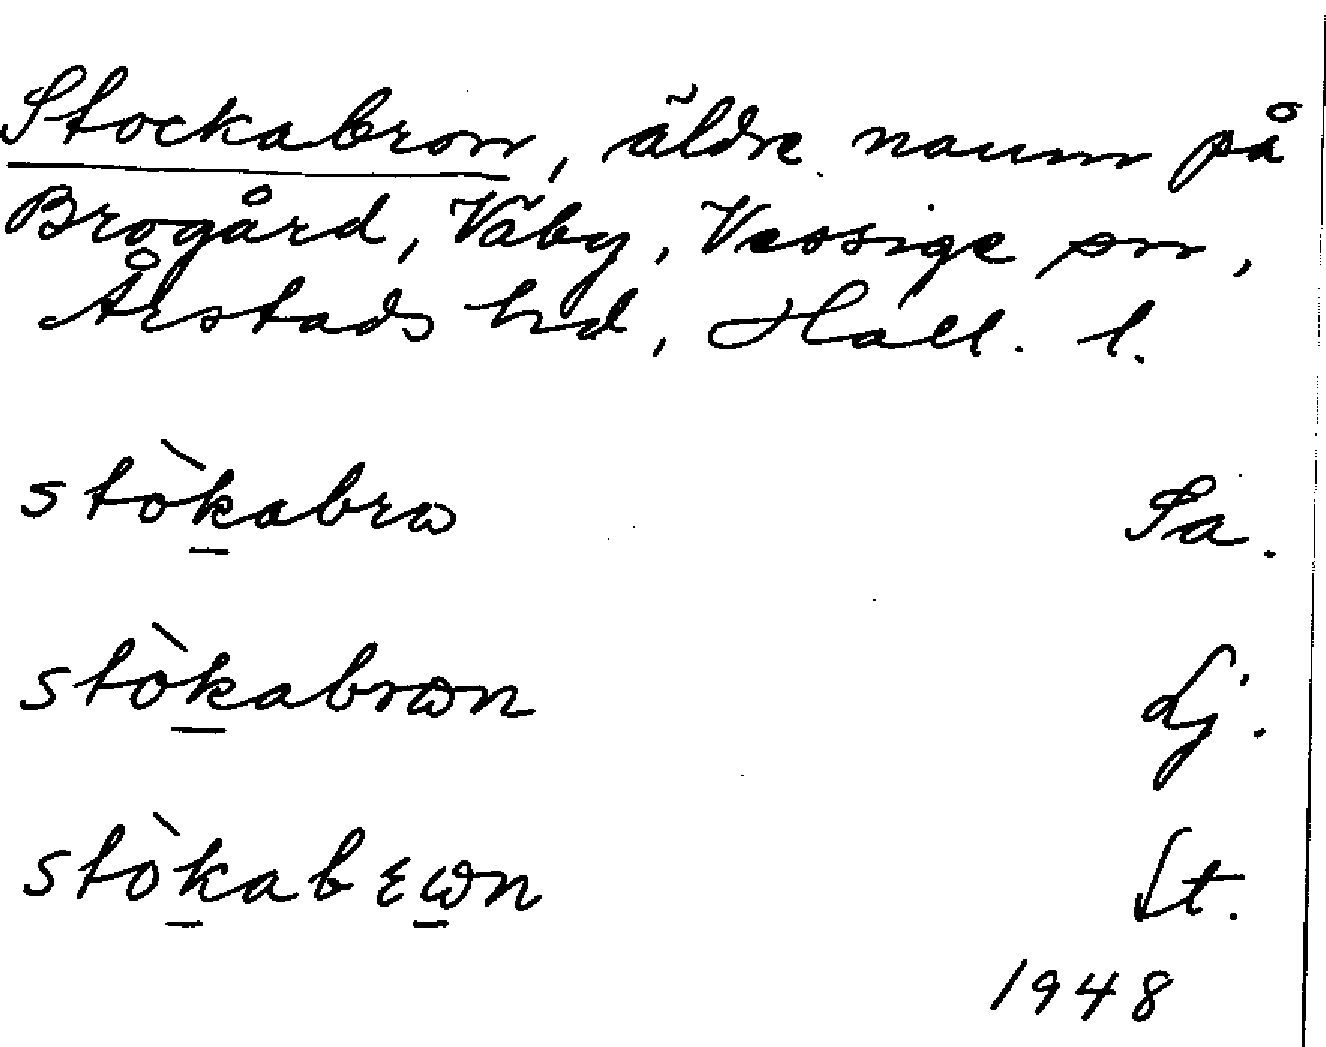 Stockabron, äldre namn på
Brogård, Väby, Vessige sn,
Årstads hd, Hall. l.
stòkabrɷ Sa.
stòkabrɷn Lj.
stòkabɛɷn St.
1948